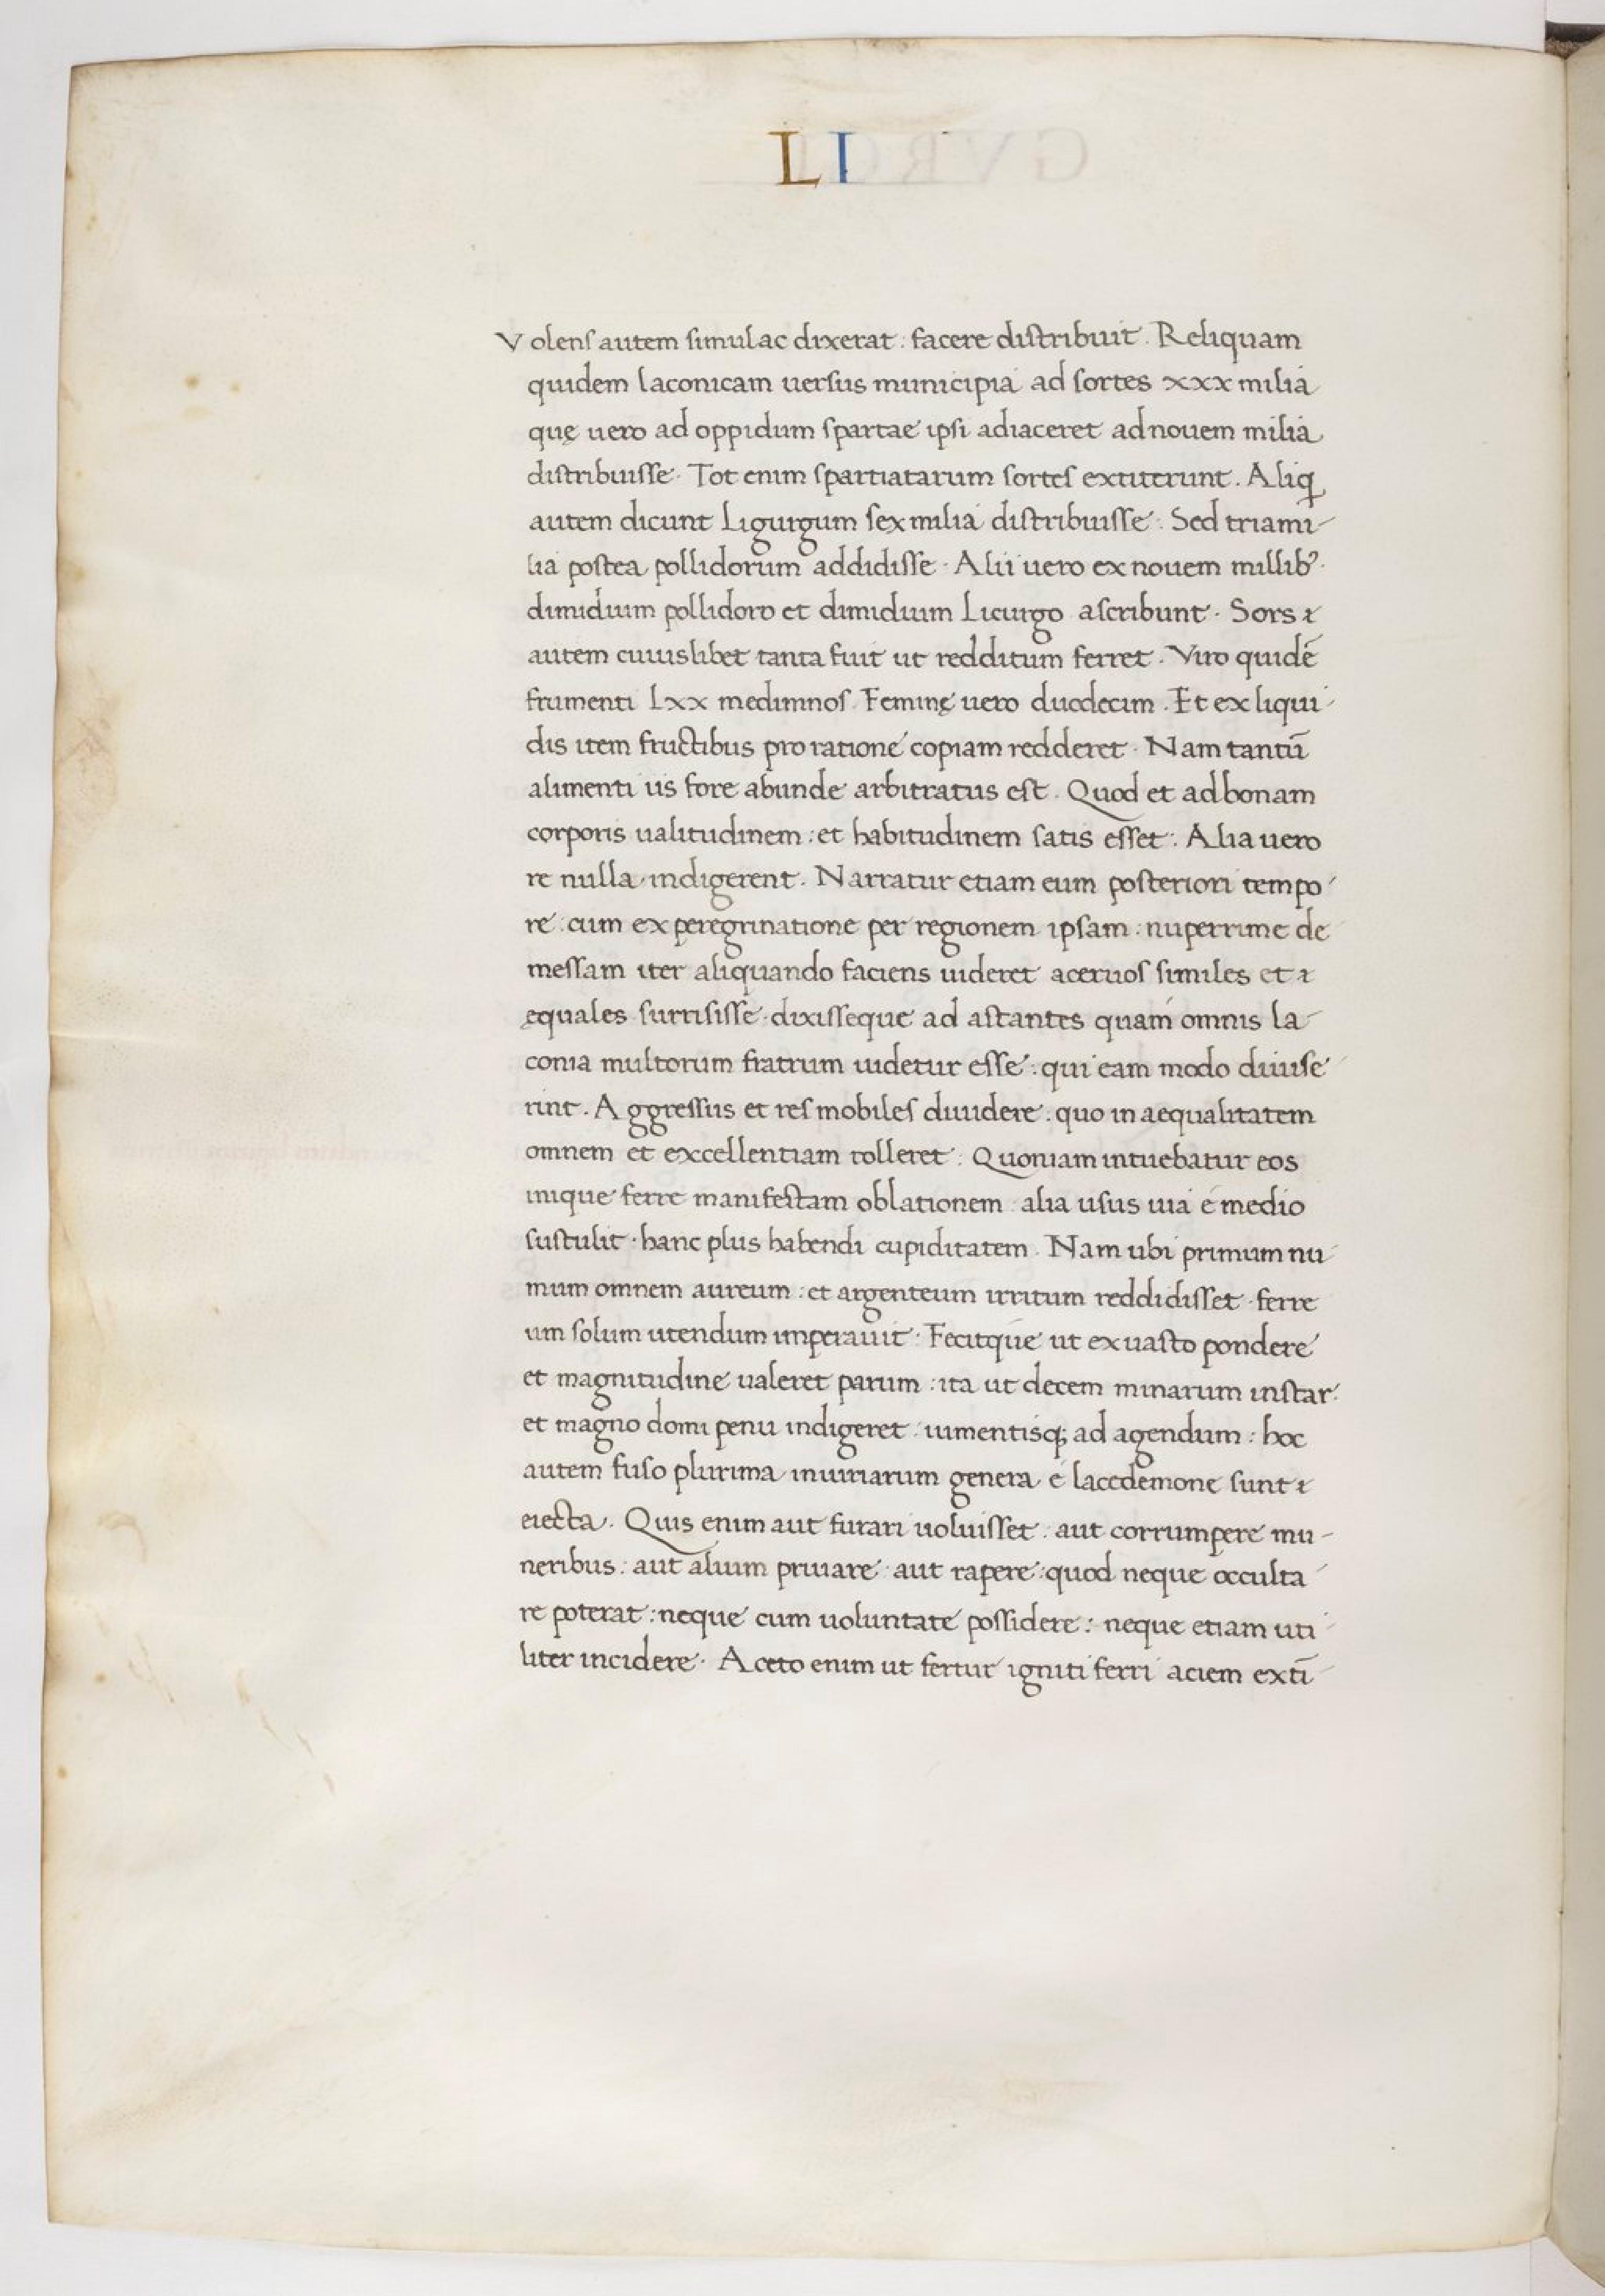 LI
Volens autem simulac dixerat : facere distribuit . Reliquam
quidem laconicam uersus municipia ad sortes xxx milia
quę uero ad oppidum spartae ipsi adiaceret ad nouem milia
distribuisse . Tot enim spartiatarum sortes extiterunt . Aliq
autem dicunt Ligurgum sex milia distribuisse : Sed tria mi-
lia postea pollidorum addidisse . Alii uero ex nouem millib⁹ .
dimidium pollidoro et dimidium Licurgo ascribunt . Sors
autem cuiuslibet tanta fuit ut redditum ferret . Viro quidē
frumenti Lxx medimnos . Feminę uero duodecim . Et ex liqui-
dis item fructibus pro ratione copiam redderet . Nam tantū
alimenti iis fore abunde arbitratus est . Quod et ad bonam
corporis ualitudinem : et habitudinem satis esset : Alia uero
re nulla indigerent . Narratur etiam eum posteriori tempo-
re : cum ex peregrinatione per regionem ipsam : nuperrime de
messam iter aliquando faciens uideret aceruos similes et
ęquales surrisisse . dixisseque ad astantes quam omnis la-
conia multorum fratrum uidetur esse : qui eam modo diuise-
rint . Aggressus et res mobiles diuidere : quo inaequalitatem
omnem et excellentiam tolleret : Quoniam intuebatur eos
inique ferre manifestam oblationem . alia usus uia é medio
sustulit . hanc plus habendi cupiditatem . Nam ubi primum nu-
mum omnem aureum : et argenteum irritum reddidisset . ferre
um solum utendum imperauit . Fecitque ut ex uasto pondere
et magnitudine ualeret parum : ita ut decem minarum instar .
et magno domi penu indigeret : iumentisq; ad agendum : hoc
autem fuso plurima iniuriarum genera é lacedemone sunt
eiecta . Quis enim aut furari uoluisset : aut corrumpere mu-
neribus : aut alium priuare : aut rapere : quod neque occulta-
re poterat : neque cum uoluntate possidere : neque etiam uti-
liter incidere . Aceto enim ut fertur igniti ferri aciem extī-